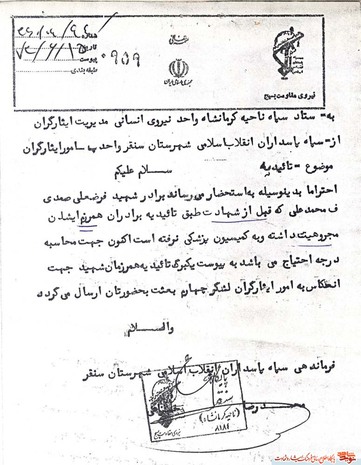 شماره
تاریخ
پیوست
طبقه‌بندی
۰۹۰۹
جمهوری اسلامی ایران
نیروی مقاومت بسیج
به- ستاد سپاه ناحیه کرمانشاه واحد نیروی انسانی مدیریت ایثارگران
از- سپاه پاسداران انقلاب اسلامی شهرستان سنقر واحد پ- امور ایثارگران
موضوع - تائیدیه
سلام علیکم
احتراما بدینوسیله به استحضار می رساند برادر شهید فرضعلی صمدی
ف محمد علی که قبل از شهادت طبق تائیدیه برادران همرزم ایشان
مجروحیت داشته و به کمیسیون پزشکی نرفته است اکنون جهت محاسبه
درجه احتیاج می باشد به پیوست یکبرگ تائیدیه همرزمان شهید جهت
انعکاس به امور ایثارگران لشگر چهارم بعثت بحضورتان ارسال می گردد
والسلام
فرماندهی سپاه پاسداران انقلاب اسلامی شهرستان سنقر